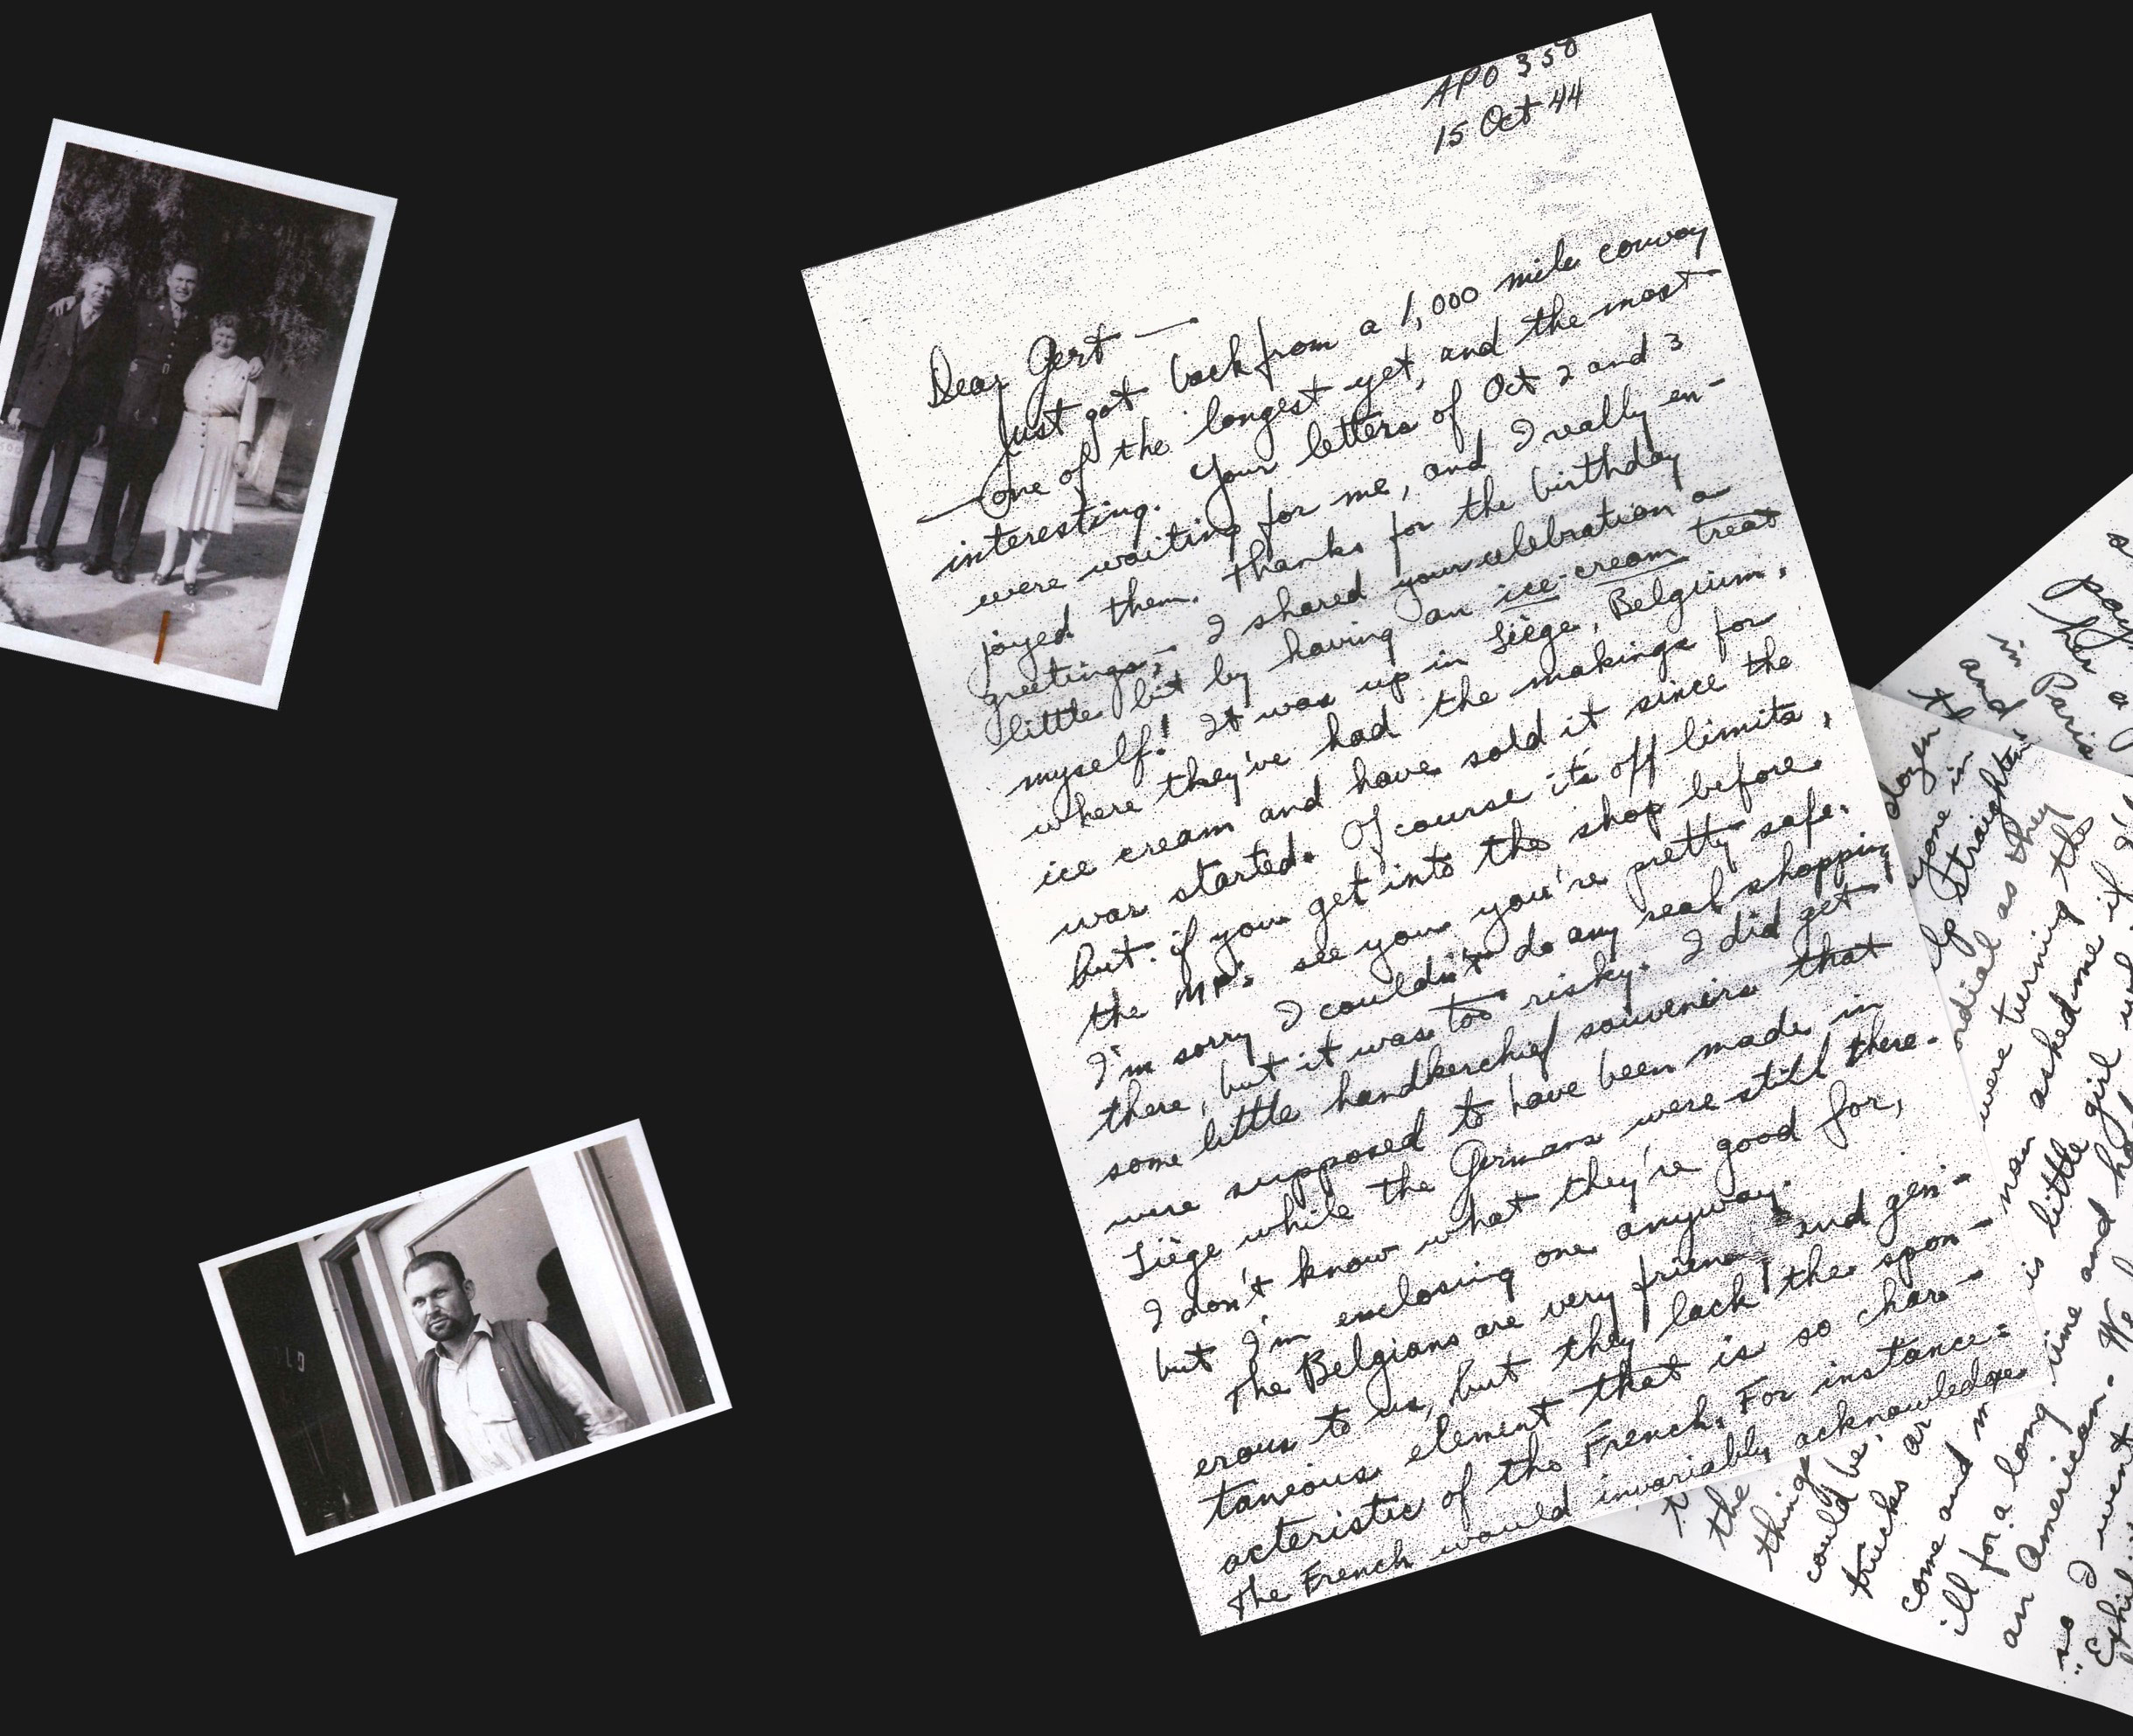 APO 358
15 Oct 44
Dear Gert —
Just got back from a 1,000 mile convoy
— one of the longest yet, and the most
interesting. Your letters of Oct 2 and 3
were waiting for me, and I really en-
joyed them. Thanks for the birthday
greetings; I shared your celebration a
little bit by having an ice cream treat
myself! It was up in Liège, Belgium,
where they've had the makings for
ice cream and have sold it since the
war started. Of course it's off limits,
but if you get into the shop before
the MP's see you you're pretty safe.
I'm sorry I couldn't do any real shopping
there, but it was too risky. I did get
some little handkerchief souvenirs that
were supposed to have been made in
Liège while the Germans were still there.
I don't know what they're good for,
but I'm enclosing one anyway.
The Belgians are very friendly and gen-
erous to us, but they lack the spon-
taneous element that is so char-
acteristic of the French. For instance:
The French would invariably acknowledge
a
and
in
Paris
her a
dozen
yone in
lp straighten
ordial as they
were turning the
man asked me if
is little girl
time and
the
thing
could be.
trucks ar
come and m
ill for a long
an American. We
so I went